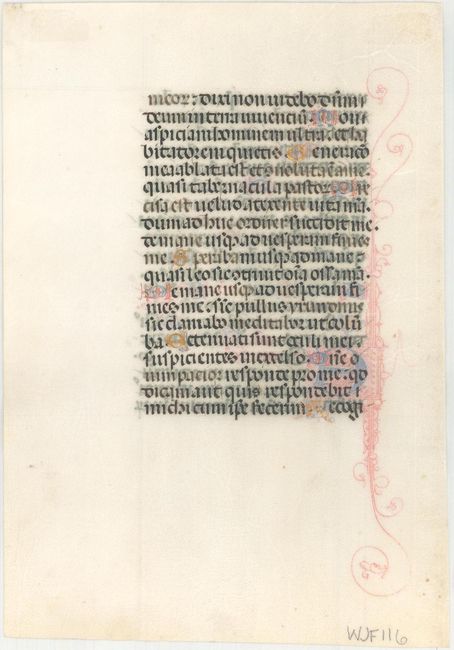 meor(um): dixi non videbo d(omi)n(u)m
deum in terra viventiu(m) Non
aspiciam hominem ultra: et ha
bitatorem quietis Generatio
mea ablata est et (con)voluta e(st) a me
quasi tabernacula pastor(um) Pre
cisa est velud a texente vita m(e)a
dum adhuc ordirer succidit me
de mane usq(ue) ad vesperam finies
me Sperabam usq(ue) ad mane:
quasi leo sic (con)trivit o(mn)ia ossa m(e)a
De mane usq(ue) ad vesperam fi
nies me: sic(ut) pullus yrundinis
sic clamabo meditabor ut colu(m)
ba Attenuati sunt oculi mei:
suspicientes in excelso D(omi)ne
vim patior responde pro me: q(ui)d
dicam aut quis respondebit
michi cum ip(s)e fecerim Recogi
WJF116